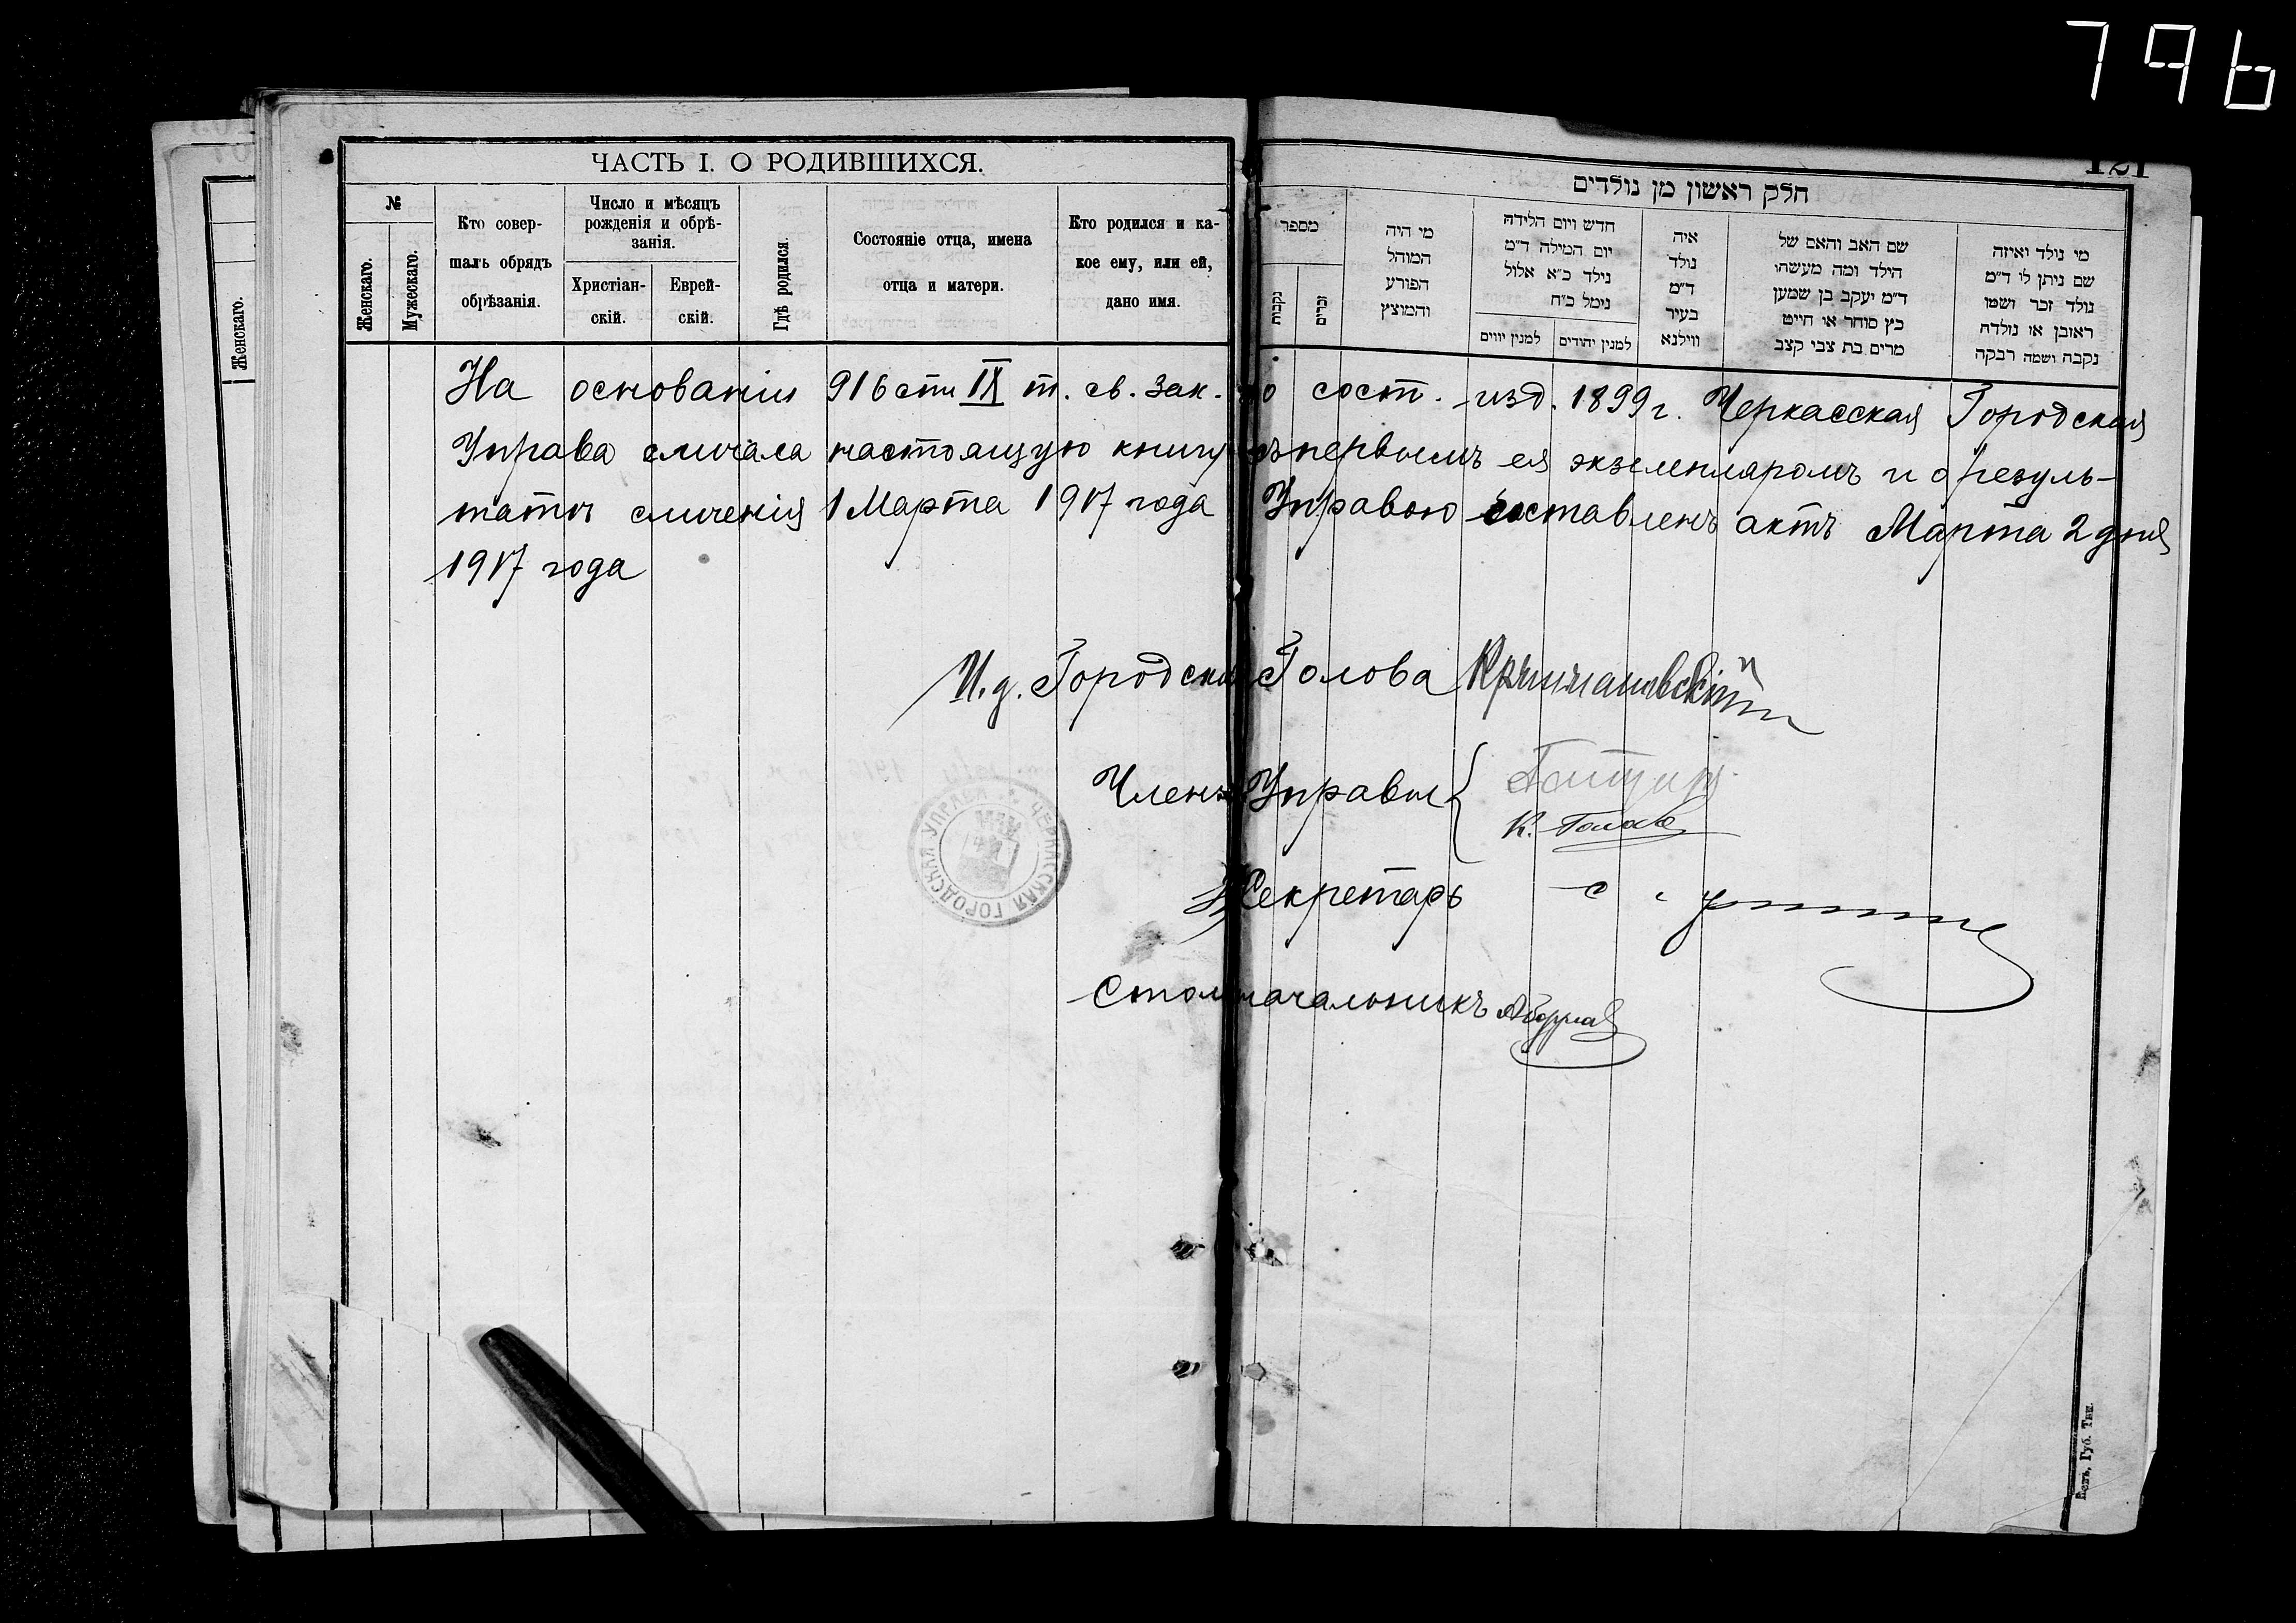 796
121
ЧАСТЬ I. О РОДИВШИХСЯ.
№
Женскаго.
Мужескаго.
Кто совер-
шалъ обрядъ
обрѣзанія.
Число и мѣсяцъ
рожденія и обрѣ-
занія.
Христіан-
скій.
Еврей-
скій.
Гдѣ родился.
Состояніе отца, имена
отца и матери.
Кто родился и ка-
кое ему, или ей,
дано имя.
Женскаго.
חלק ראשון מן נולדים
מספר
נקבות
זכרים
מי היה
המוהל
הפורע
והמוצץ
חדש ויום הלידה
יום המילה ד״מ
נילד כ״א אלול
נימל כ״ח
למנין יווים
למנין יהודים
איה
נולד
ד״מ
בעיר
ווילנא
שם האב והאם של
הילד ומה מעשהו
ד״מ יעקב בן שמען
כץ סוחר או חייט
מרים בת צבי קצב
מי נולד ואיזה
שם ניתן לו ד״מ
נולד זכר ושמו
ראובן או נולדה
נקבה ושמה רבקה
На основаніи 916 ст. IX т. св. зак. по сост. изд. 1899 г. Черкасская Городская
Управа сличала настоящую книгу съ первымъ ея экземпляромъ и о резуль-
татѣ сличенія 1 Марта 1917 года Управою составленъ актъ Марта 2 дня
1917 года
И.д. Городской Голова
Члены Управы
К.
Секретарь
Столоначальникъ
ЧЕРКАССКАЯ ГОРОДСКАЯ УПРАВА
Губ. Тип.